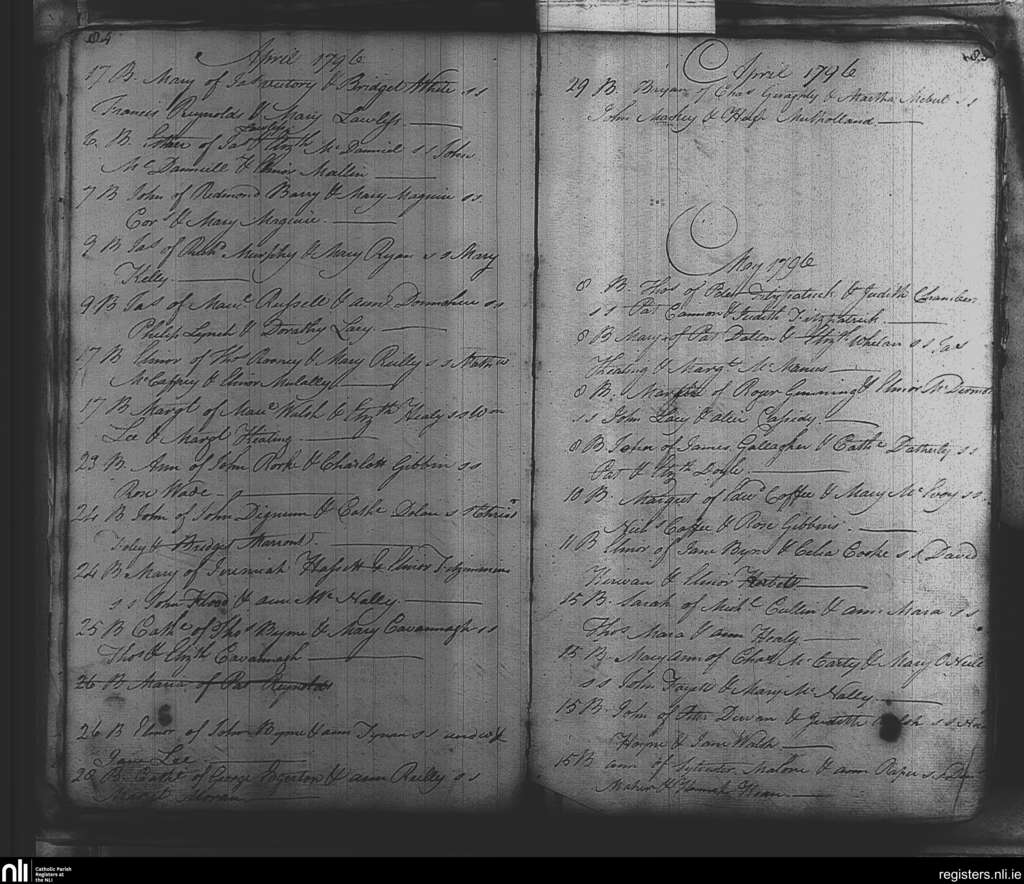 184
April 1796
17 B. Mary of Jas Victory & Bridget White ss
Francis Reynolds & Mary Lawless
6 B. Esther of Jas & Elizth McDanniel ss John
McDanniell & Elinor Mallin
7 B John of Redmond Barry & Mary Maguire ss
Cors & Mary Maguire
9 B Jas of Richd Murphy & Mary Ryan ss Mary
Kelly
9 B Jas of Maurc Russell & ann ss
Philip Lynch & Dorathy Lacy
17 B Elinor of Thos Rooney & Mary Reilly ss
McCaffrey & Elinor Mulally
17 B Margt of Maurc Walsh & Elizth Healy ss Wm
Lee & Margt Keating
23 B. Ann of John Rorke & Charlott Gibbin ss
Rose Wade
24 B John of John Dignum & Cathe Dolan ss
Foley & Bridget
24 B Mary of Jeremiah Hassett & Elinor Fitzmaurice
ss John Flood & ann McNally
25 B Cathe of Thos Byrne & Mary Cavannagh ss
Thos & Elizth Cavannagh
26 B Maria of Pat Reynolds
26 B Elinor of John Byrne & ann Tynan ss
Jane Lee
28 B. Cathe of George Edgerton & ann Reilly ss
Margt Moran
185
April 1796
29 B. Bryan of Chas Geraghty & Martha ss
John Markey & Hugh Mulholland
May 1796
8 B. Thos of Fitzpatrick & Judith Chambers
ss Pat Cannon & Judith Fitzpatrick
8 B Mary of Pat Dalton & Elizth Whelan ss Jas
Keating & Margt McManus
8 B. of Roger Gumming & Elinor McDermot
ss John Lacy & alice Cassidy
8 B. John of James Gallagher & Cathe ss
Pat & Elizth Doyle
10 B. Margret of Edwd Coffee & Mary McEvoy ss
Nichs Coffee & Rose Gibbins
11 B Elinor of Jam Byrn & Celia Cooke ss David
Kirwan & Elinor
15 B. Sarah of Michl Cullin & ann Mara ss
Thos Mara & ann Healy
15 B. Mary ann of Chas McCarty & Mary O Neill
ss John & Mary McNally
15 B. John of Peter & Judith Walsh ss
& Jane Walsh
15 B ann of Sylvester Malone & ann ss
Maher &
nli
Catholic Parish
Registers at
the NLI
registers.nli.ie